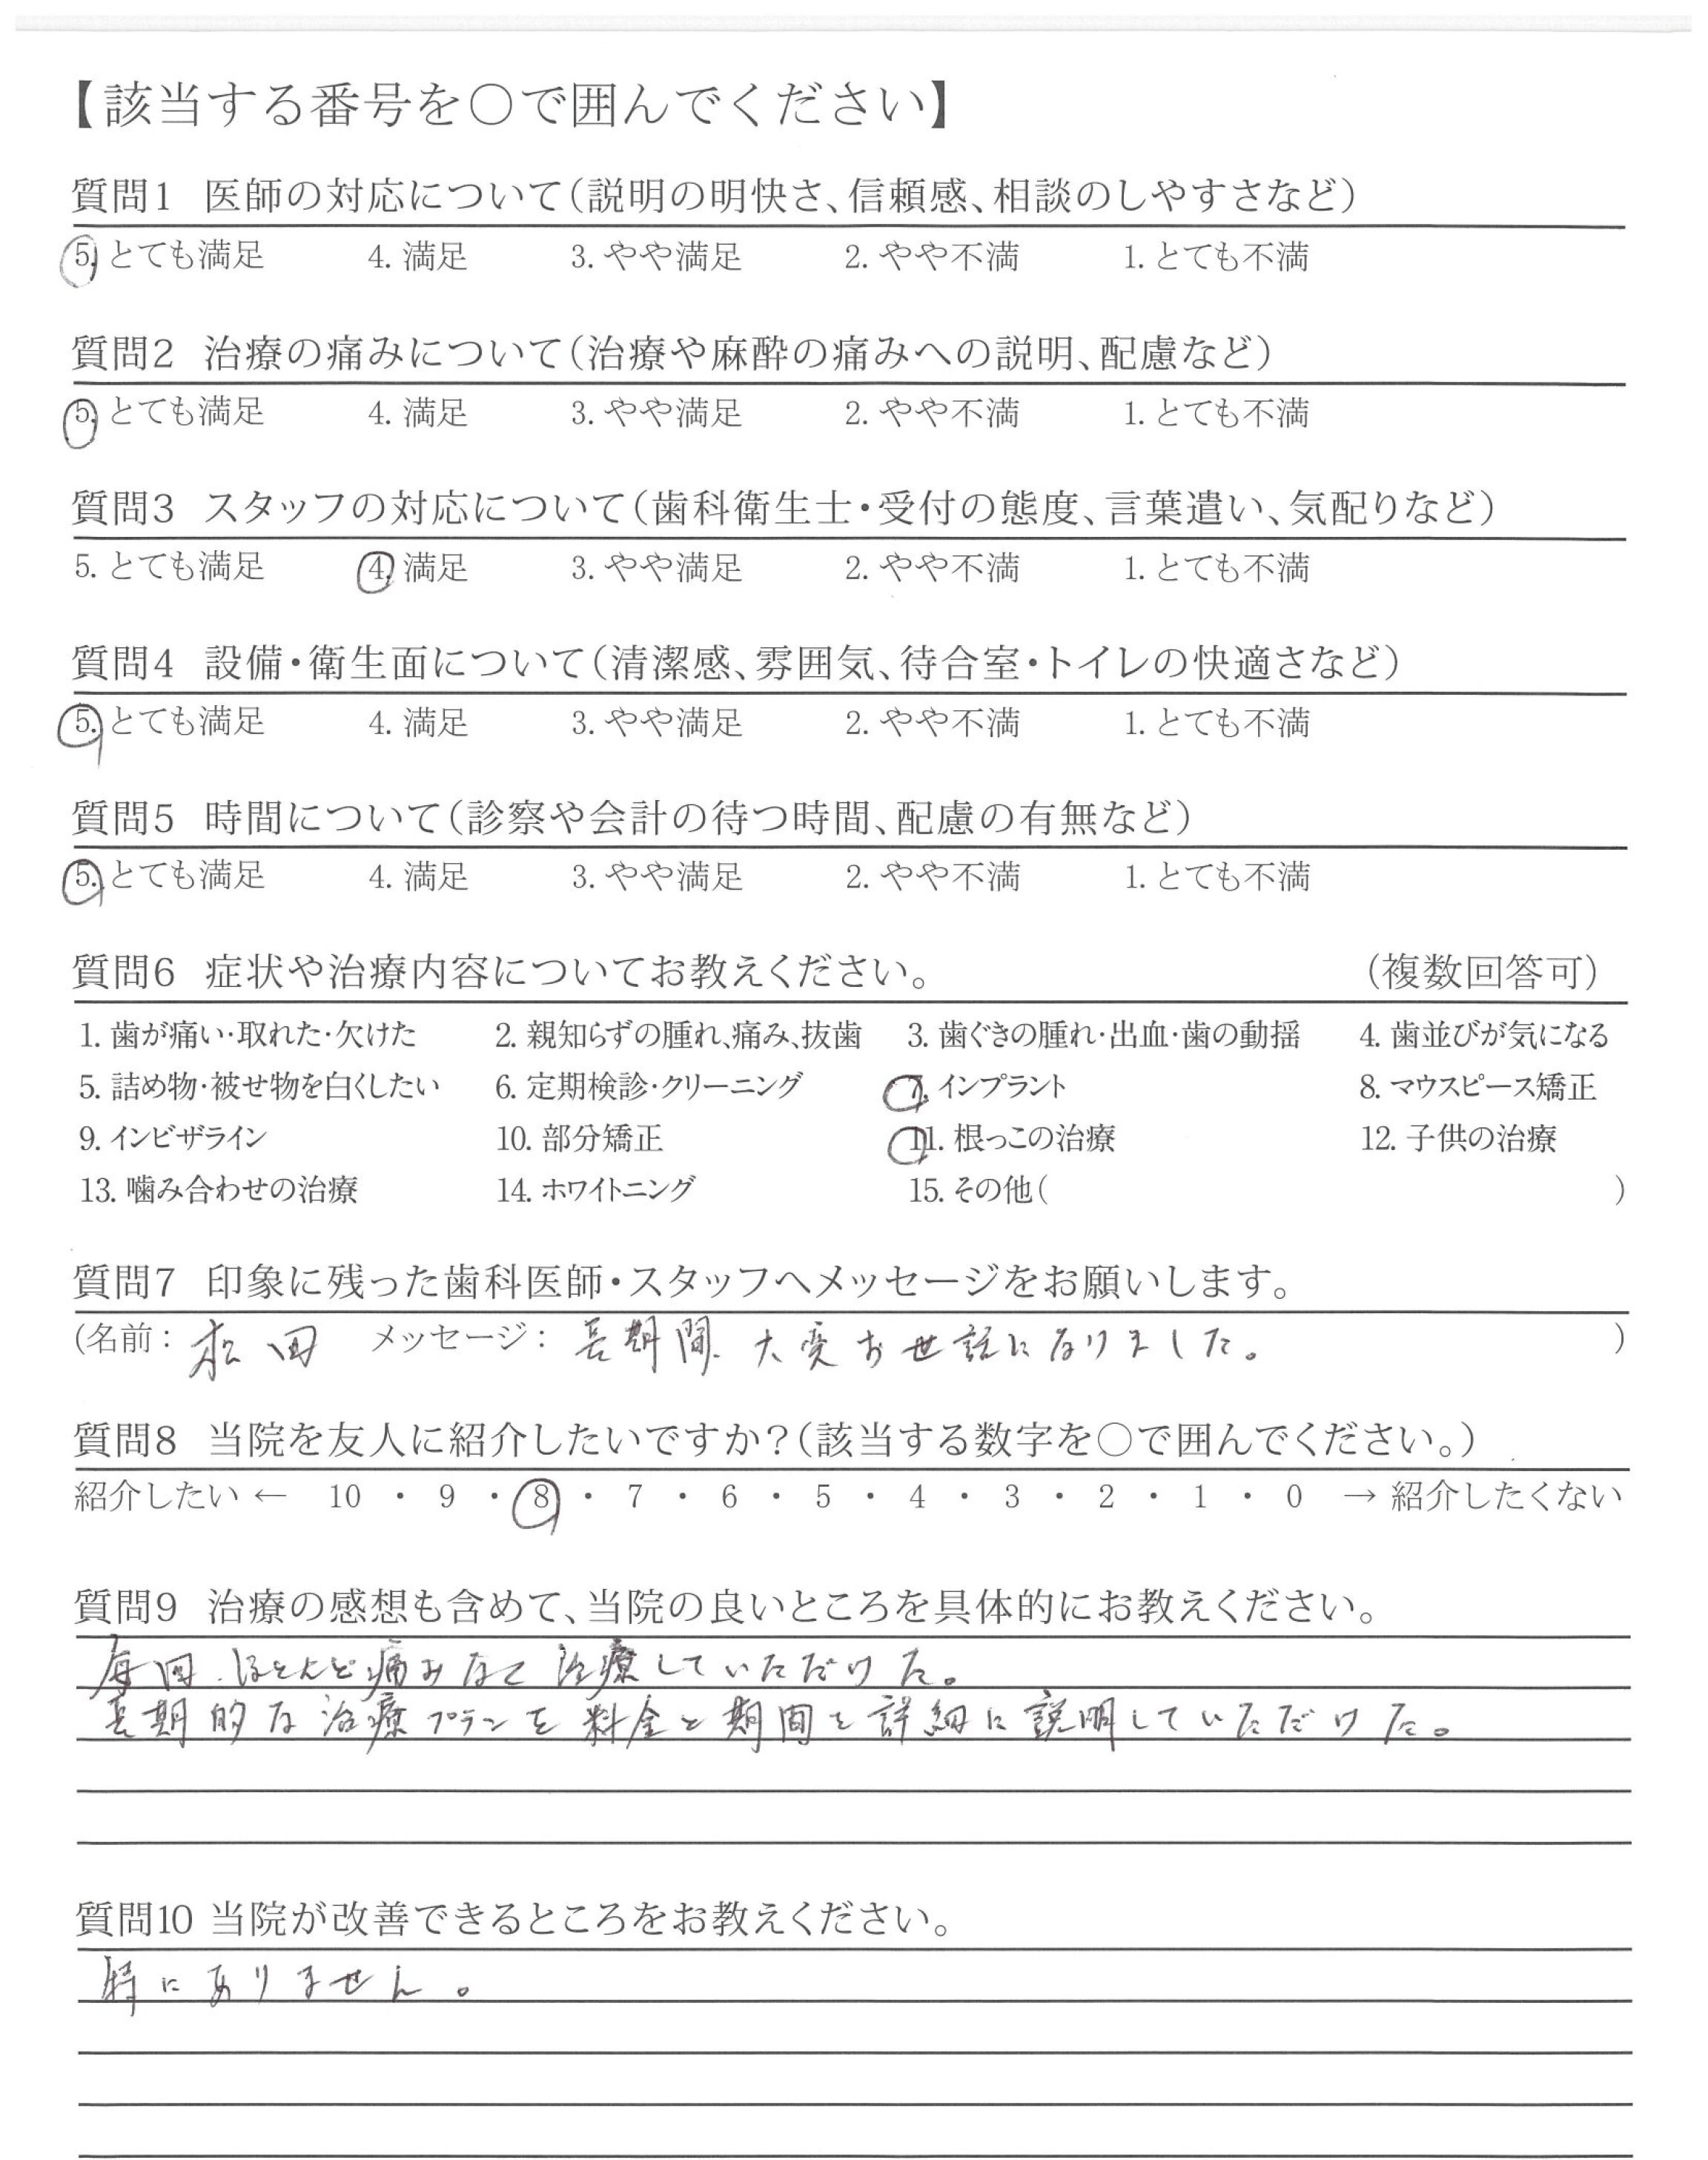 【該当する番号を○で囲んでください】
質問1 医師の対応について(説明の明快さ、信頼感、相談のしやすさなど)
5. とても満足 4. 満足 3. やや満足 2. やや不満 1. とても不満
質問2 治療の痛みについて(治療や麻酔の痛みへの説明、配慮など)
5. とても満足 4. 満足 3. やや満足 2. やや不満 1. とても不満
質問3 スタッフの対応について(歯科衛生士・受付の態度、言葉遣い、気配りなど)
5. とても満足 4. 満足 3. やや満足 2. やや不満 1. とても不満
質問4 設備・衛生面について(清潔感、雰囲気、待合室・トイレの快適さなど)
5. とても満足 4. 満足 3. やや満足 2. やや不満 1. とても不満
質問5 時間について(診察や会計の待つ時間、配慮の有無など)
5. とても満足 4. 満足 3. やや満足 2. やや不満 1. とても不満
質問6 症状や治療内容についてお教えください。 (複数回答可)
1. 歯が痛い・取れた・欠けた 2. 親知らずの腫れ、痛み、抜歯 3. 歯ぐきの腫れ・出血・歯の動揺 4. 歯並びが気になる
5. 詰め物・被せ物を白くしたい 6. 定期検診・クリーニング 7. インプラント 8. マウスピース矯正
9. インビザライン 10. 部分矯正 11. 根っこの治療 12. 子供の治療
13. 噛み合わせの治療 14. ホワイトニング 15. その他( )
質問7 印象に残った歯科医師・スタッフへメッセージをお願いします。
(名前: 松田 メッセージ: 長期間、大変お世話になりました。 )
質問8 当院を友人に紹介したいですか?(該当する数字を○で囲んでください。)
紹介したい ← 10 ・ 9 ・ 8 ・ 7 ・ 6 ・ 5 ・ 4 ・ 3 ・ 2 ・ 1 ・ 0 → 紹介したくない
質問9 治療の感想も含めて、当院の良いところを具体的にお教えください。
毎回、ほとんど痛みなく治療していただけた。
長期的な治療プランを料金と期間を詳細に説明していただけた。
質問10 当院が改善できるところをお教えください。
特にありません。